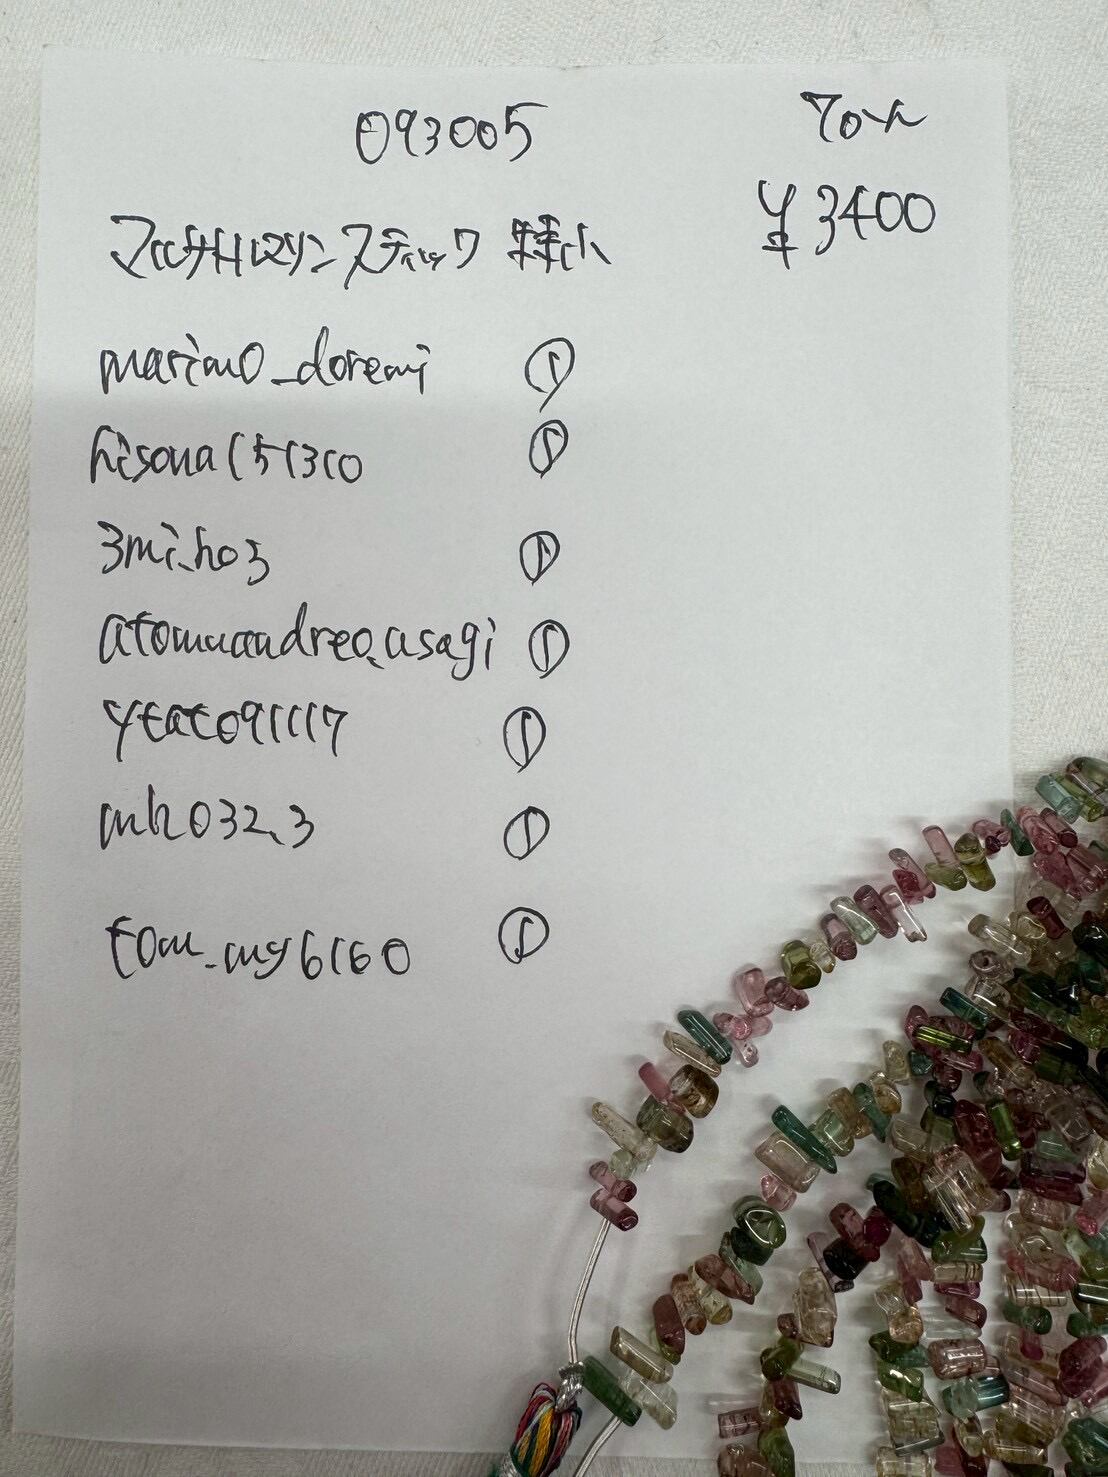 093005
70ct
¥3400
マルチトルマリンスティック 特小
marimo_doremi ①
hisona151310 ①
3mi.ho3 ①
atomuandreo.usagi ①
ytato91117 ①
mh032.3 ①
tom_my6160 ①